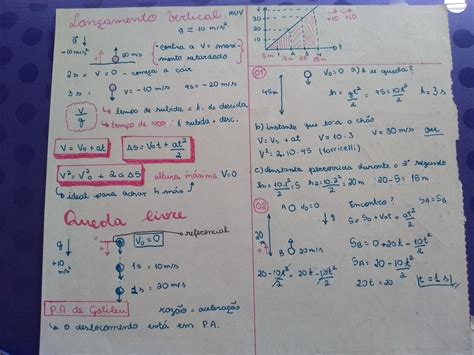 Lançamento Vertical MUV
g ≅ 10 m/s²
g
-10 m/s²
20 m/s
• contra a V = movimento retardado
2s = V = 0 - começa a cair
3s = V = -10 m/s 4s = -20 m/s
V/g
→ tempo de subida = t. de descida
↳ tempo de voo: t subida + desc.
V = V₀ + at
ΔS = V₀t + at²/2
V² = V₀² + 2aΔS
altura máxima V = 0
↳ ideal para achar h máx
Queda livre
referencial
V₀ = 0
g
+10 m/s²
1s = 10 m/s
P.A de Galileu
razão = aceleração
↳ o deslocamento está em P.A.
30
20
10
+10 +10
01
45m
V₀ = 0 a) t de queda?
h = gt²/2 = 45 = 10t²/2 t = 3s
b) instante que toca o chão
V = V₀ + at V = 10.3 V = 30 m/s ou
V² = 2.10.45 (torricelli)
c) distancia percorrida durante o 2° segundo
h₁ = 10.1²/2 = 5 h₂ = 10.2²/2 = 20m 20 - 5 = 15m
02
A V₀ = 0 Encontro? SA = SB
S = S₀ + V₀t + at²/2
20
B 20 m/s
SB = 0 + 20t - 10t²/2
SA = 20 - 10t²/2
20 - 10t²/2 = 20t - 10t²/2
20t = 20 t = 1s